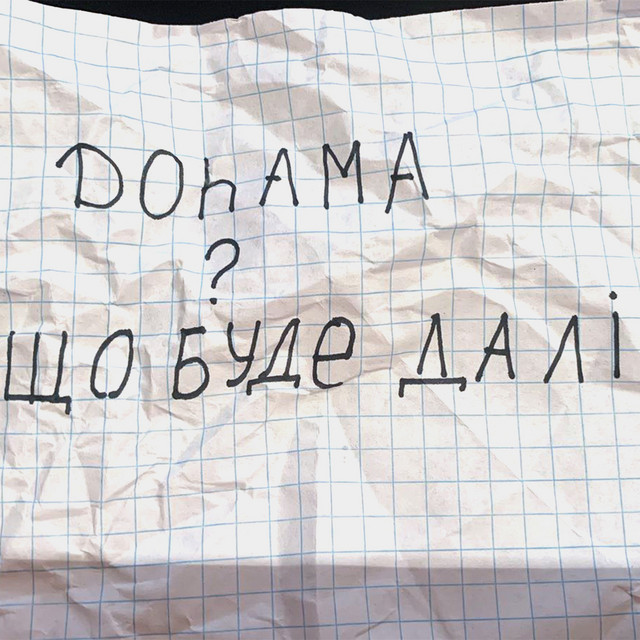 DOhAMA
?
ЩО БУДЕ ДАЛІ